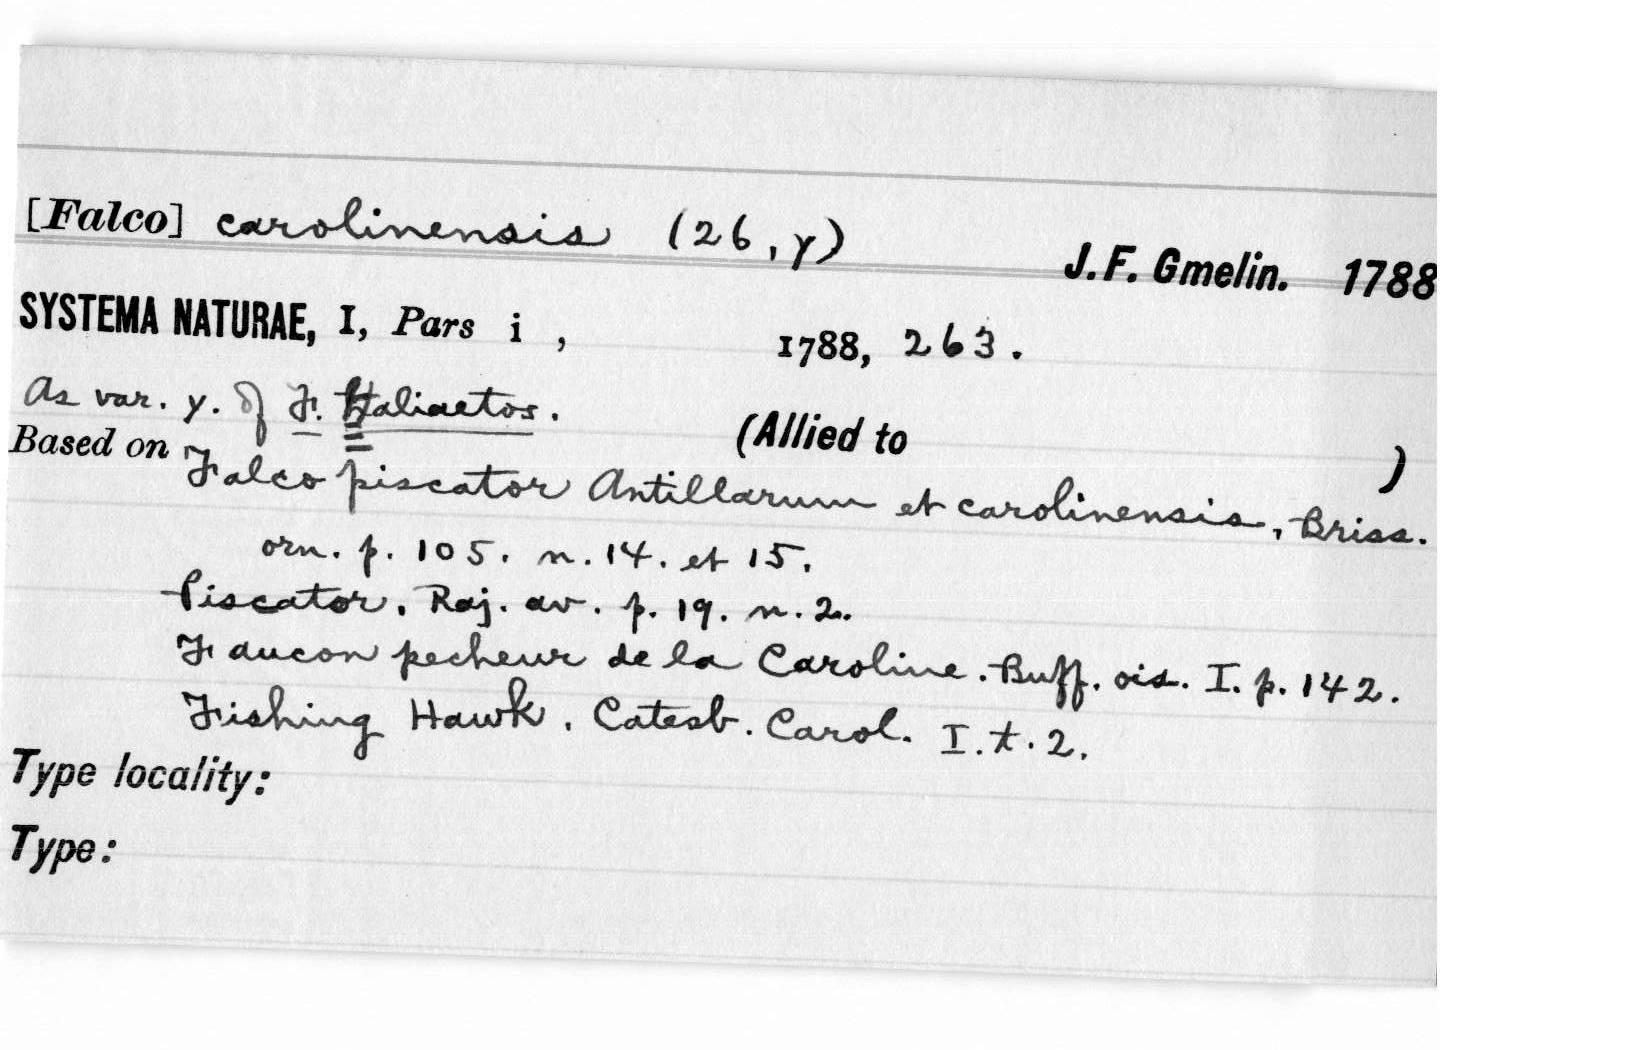 [Falco] carolinensis (26, γ)
J. F. Gmelin. 1788
SYSTEMA NATURAE, I, Pars i , 1788, 263.
As var. γ. of F. Haliaetos.
(Allied to )
Based on Falco piscator Antillarum et carolinensis, Briss.
orn. p. 105. n. 14. et 15.
Piscator. Raj. av. p. 19. n. 2.
Faucon pecheur de la Caroline. Buff. ois. I. p. 142.
Fishing Hawk. Catesb. Carol. I. t. 2.
Type locality:
Type: